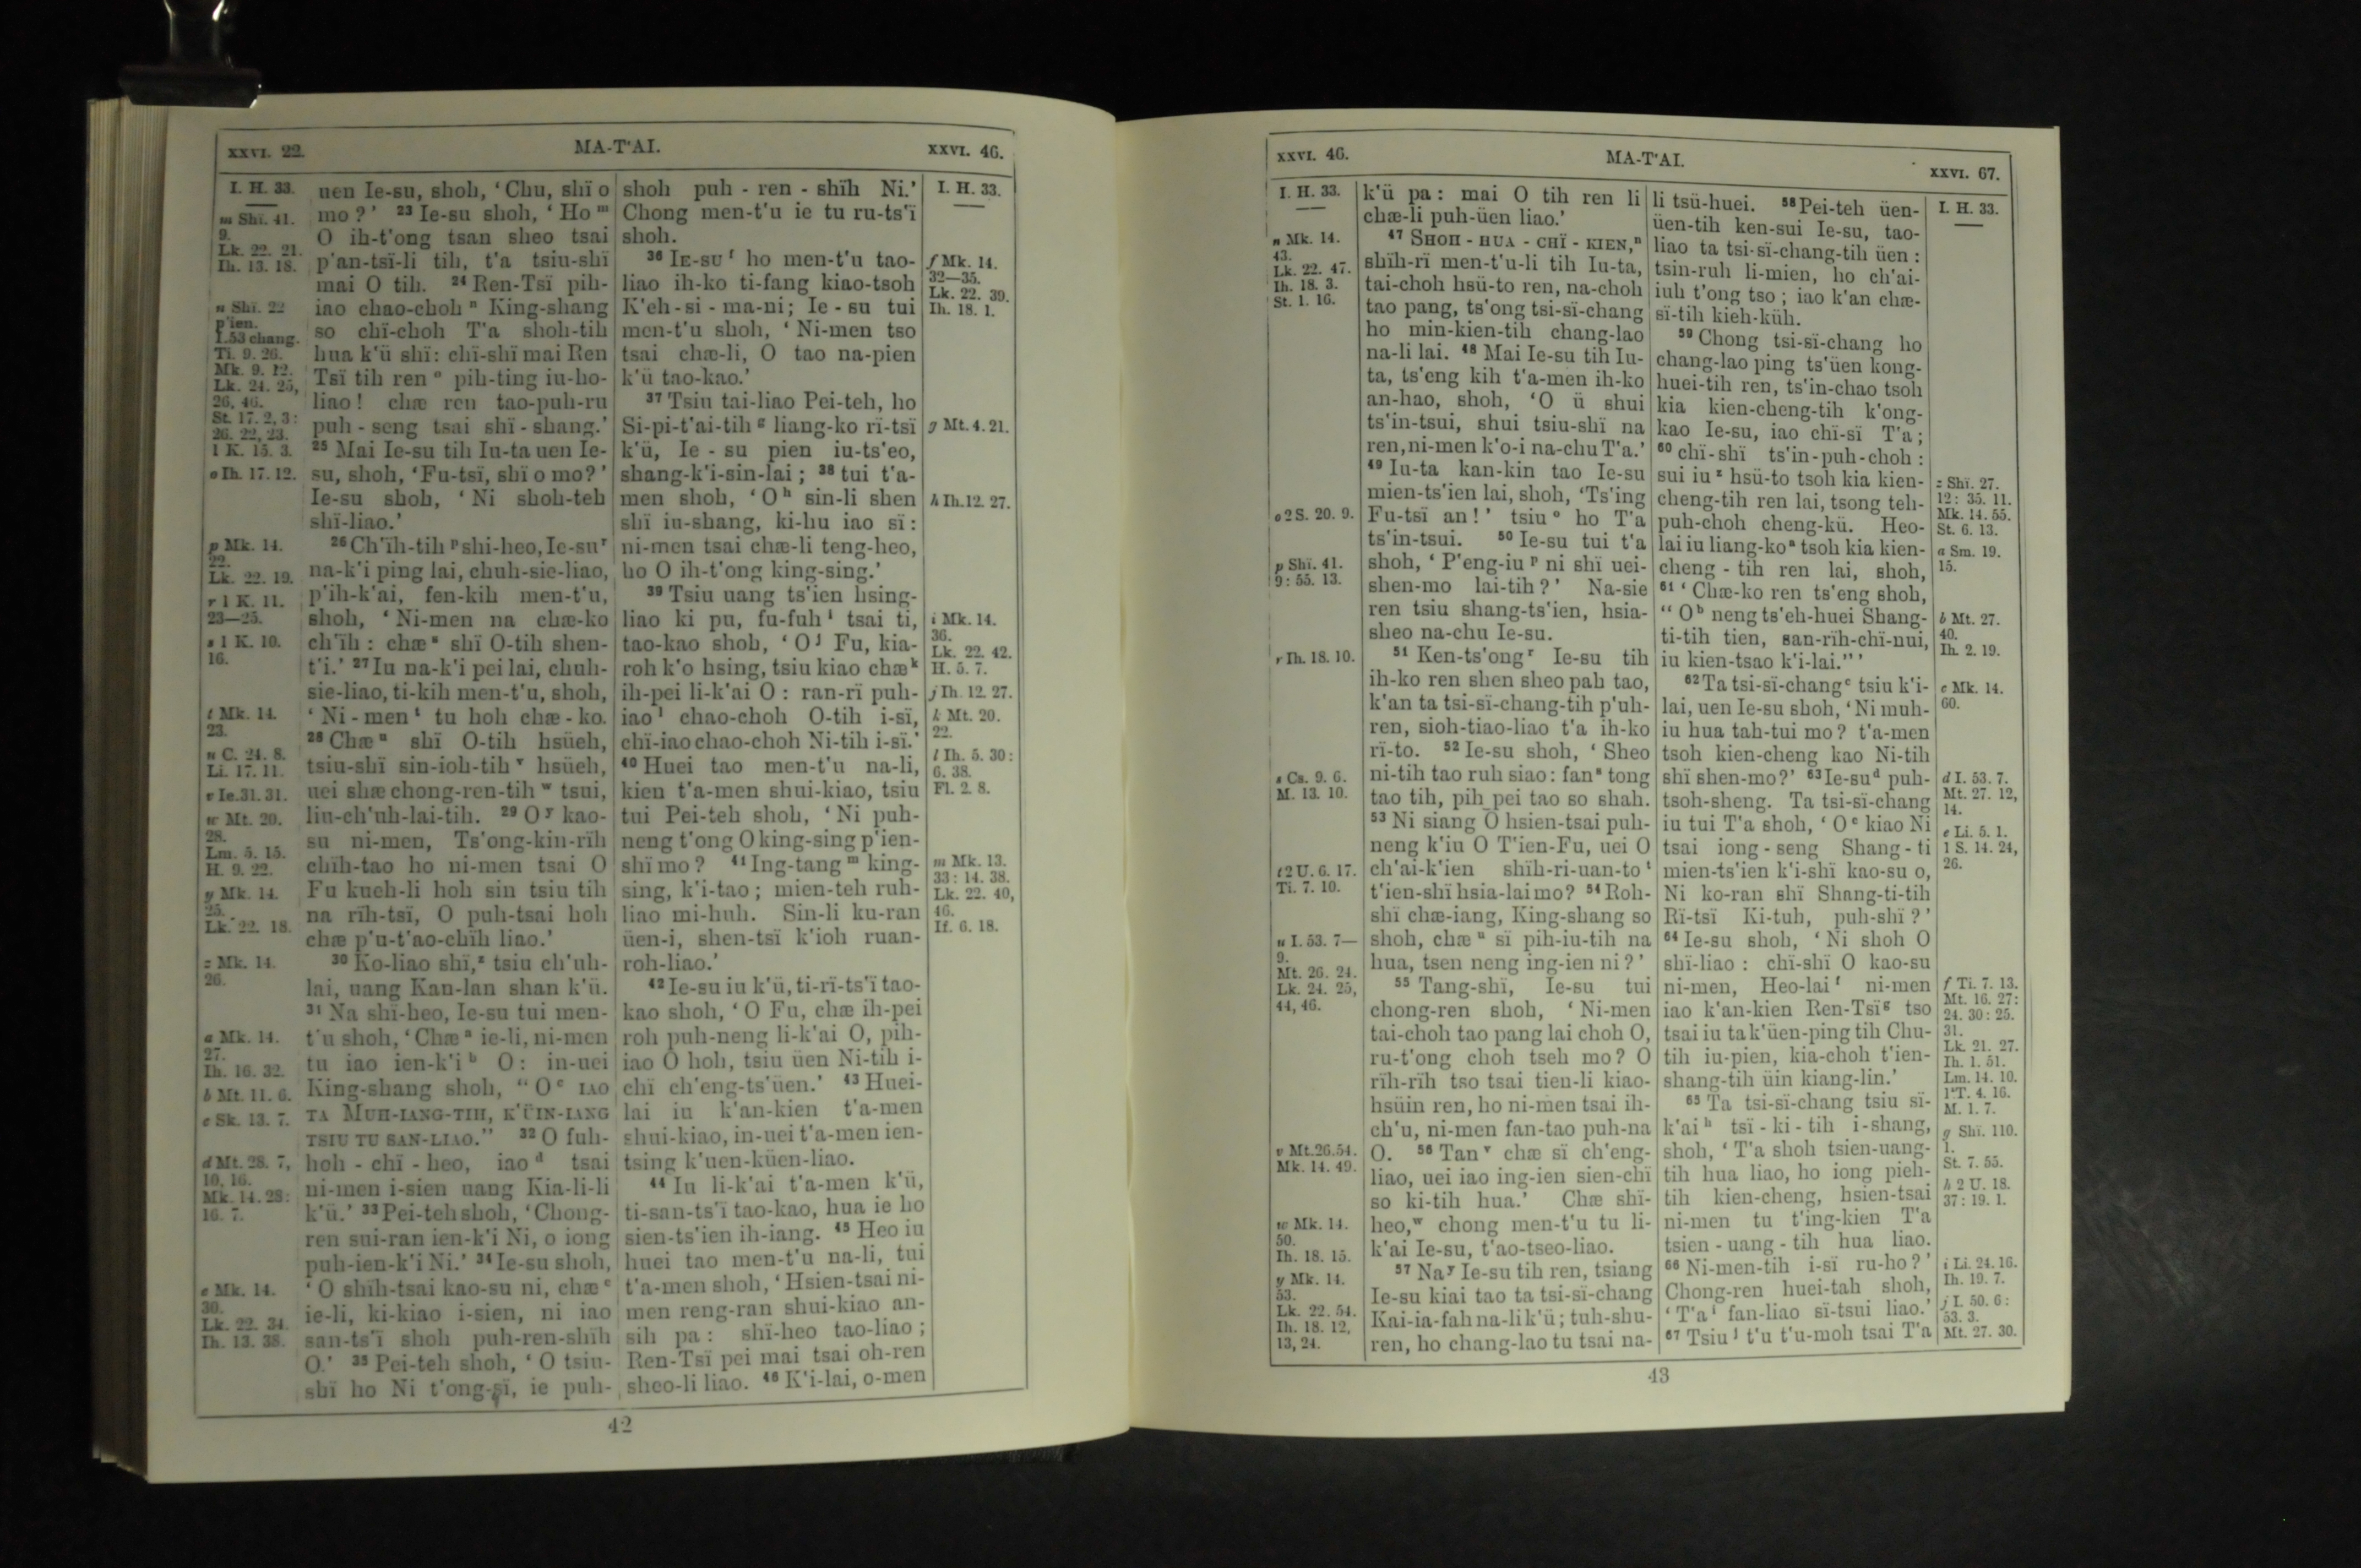 XXVI. 22.
MA-T'AI.
XXVI. 46.
I. H. 33.
m Shï. 41.
9.
Lk. 22. 21.
Ih. 13. 18.
n Shï. 22
p'ien.
I. 53 chang.
Ti. 9. 26.
Mk. 9. 12.
Lk. 24. 25,
26, 46.
St. 17. 2, 3:
26. 22, 23.
1 K. 15. 3.
o Ih. 17. 12.
p Mk. 14.
22.
Lk. 22. 19.
r 1 K. 11.
23—25.
s 1 K. 10.
16.
t Mk. 14.
23.
u C. 24. 8.
Li. 17. 11.
v Ie. 31. 31.
w Mt. 20.
28.
Lm. 5. 15.
H. 9. 22.
y Mk. 14.
25.
Lk. 22. 18.
z Mk. 14.
26.
a Mk. 14.
27.
Ih. 16. 32.
b Mt. 11. 6.
c Sk. 13. 7.
d Mt. 28. 7,
10, 16.
Mk. 14. 28:
16. 7.
e Mk. 14.
30.
Lk. 22. 34.
Ih. 13. 38.
uen Ie-su, shoh, ‘Chu, shï o
mo?’ 23 Ie-su shoh, ‘Ho m
O ih-t'ong tsan sheo tsai
p'an-tsï-li tih, t'a tsiu-shï
mai O tih. 24 Ren-Tsï pih-
iao chao-choh n King-shang
so chï-choh T'a shoh-tih
hua k'ü shï: chï-shï mai Ren
Tsï tih ren o pih-ting iu-ho-
liao! chæ ren tao-puh-ru
puh-seng tsai shï-shang.’
25 Mai Ie-su tih Iu-ta uen Ie-
su, shoh, ‘Fu-tsï, shï o mo?’
Ie-su shoh, ‘Ni shoh-teh
shï-liao.’
26 Ch'ïh-tih p shi-heo, Ie-su r
na-k'i ping lai, chuh-sie-liao,
p'ih-k'ai, fen-kih men-t'u,
shoh, ‘Ni-men na chæ-ko
ch'ïh: chæ s shï O-tih shen-
t'i.’ 27 Iu na-k'i pei lai, chuh-
sie-liao, ti-kih men-t'u, shoh,
‘Ni-men t tu hoh chæ-ko.
28 Chæ u shï O-tih hsüeh,
tsiu-shï sin-ioh-tih v hsüeh,
uei shæ chong-ren-tih w tsui,
liu-ch'uh-lai-tih. 29 O y kao-
su ni-men, Ts'ong-kin-rïh
chïh-tao ho ni-men tsai O
Fu kueh-li hoh sin tsiu tih
na rïh-tsï, O puh-tsai hoh
chæ p'u-t'ao-chïh liao.’
30 Ko-liao shï, z tsiu ch'uh-
lai, uang Kan-lan shan k'ü.
31 Na shï-heo, Ie-su tui men-
t'u shoh, ‘Chæ a ie-li, ni-men
tu iao ien-k'i b O: in-uei
King-shang shoh, “O c IAO
TA MUH-IANG-TIH, K'ÜIN-IANG
TSIU TU SAN-LIAO.” 32 O fuh-
hoh-chï-heo, iao d tsai
ni-men i-sien uang Kia-li-li
k'ü.’ 33 Pei-teh shoh, ‘Chong-
ren sui-ran ien-k'i Ni, o iong
puh-ien-k'i Ni.’ 34 Ie-su shoh,
‘O shïh-tsai kao-su ni, chæ e
ie-li, ki-kiao i-sien, ni iao
san-ts'ï shoh puh-ren-shïh
O.’ 35 Pei-teh shoh, ‘O tsiu-
shï ho Ni t'ong-sï, ie puh-
shoh puh-ren-shïh Ni.’
Chong men-t'u ie tu ru-ts'ï
shoh.
36 IE-SU f ho men-t'u tao-
liao ih-ko ti-fang kiao-tsoh
K'eh-si-ma-ni; Ie-su tui
men-t'u shoh, ‘Ni-men tso
tsai chæ-li, O tao na-pien
k'ü tao-kao.’
37 Tsiu tai-liao Pei-teh, ho
Si-pi-t'ai-tih g liang-ko rï-tsï
k'ü, Ie-su pien iu-ts'eo,
shang-k'i-sin-lai; 38 tui t'a-
men shoh, ‘O h sin-li shen
shï iu-shang, ki-hu iao sï:
ni-men tsai chæ-li teng-heo,
ho O ih-t'ong king-sing.’
39 Tsiu uang ts'ien hsing-
liao ki pu, fu-fuh i tsai ti,
tao-kao shoh, ‘O j Fu, kia-
roh k'o hsing, tsiu kiao chæ k
ih-pei li-k'ai O: ran-rï puh-
iao l chao-choh O-tih i-sï,
chï-iao chao-choh Ni-tih i-sï.’
40 Huei tao men-t'u na-li,
kien t'a-men shui-kiao, tsiu
tui Pei-teh shoh, ‘Ni puh-
neng t'ong O king-sing p'ien-
shï mo? 41 Ing-tang m king-
sing, k'i-tao; mien-teh ruh-
liao mi-huh. Sin-li ku-ran
üen-i, shen-tsï k'ioh ruan-
roh-liao.’
42 Ie-su iu k'ü, ti-rï-ts'ï tao-
kao shoh, ‘O Fu, chæ ih-pei
roh puh-neng li-k'ai O, pih-
iao O hoh, tsiu üen Ni-tih i-
chï ch'eng-ts'üen.’ 43 Huei-
lai iu k'an-kien t'a-men
shui-kiao, in-uei t'a-men ien-
tsing k'uen-küen-liao.
44 Iu li-k'ai t'a-men k'ü,
ti-san-ts'ï tao-kao, hua ie ho
sien-ts'ien ih-iang. 45 Heo iu
huei tao men-t'u na-li, tui
t'a-men shoh, ‘Hsien-tsai ni-
men reng-ran shui-kiao an-
sih pa: shï-heo tao-liao;
Ren-Tsï pei mai tsai oh-ren
sheo-li liao. 46 K'i-lai, o-men
I. H. 33.
f Mk. 14.
32—35.
Lk. 22. 39.
Ih. 18. 1.
g Mt. 4. 21.
h Ih. 12. 27.
i Mk. 14.
36.
Lk. 22. 42.
H. 5. 7.
j Ih. 12. 27.
k Mt. 20.
22.
l Ih. 5. 30:
6. 38.
Fl. 2. 8.
m Mk. 13.
33: 14. 38.
Lk. 22. 40,
46.
If. 6. 18.
42
XXVI. 46.
MA-T'AI.
XXVI. 67.
I. H. 33.
n Mk. 14.
43.
Lk. 22. 47.
Ih. 18. 3.
St. 1. 16.
o 2 S. 20. 9.
p Shï. 41.
9: 55. 13.
r Ih. 18. 10.
s Cs. 9. 6.
M. 13. 10.
t 2 U. 6. 17.
Ti. 7. 10.
u I. 53. 7—
9.
Mt. 26. 24.
Lk. 24. 25,
44, 46.
v Mt. 26. 54.
Mk. 14. 49.
w Mk. 14.
50.
Ih. 18. 15.
y Mk. 14.
53.
Lk. 22. 54.
Ih. 18. 12,
13, 24.
k'ü pa: mai O tih ren li
chæ-li puh-üen liao.’
47 SHOH-HUA-CHÏ-KIEN, n
shïh-rï men-t'u-li tih Iu-ta,
tai-choh hsü-to ren, na-choh
tao pang, ts'ong tsi-sï-chang
ho min-kien-tih chang-lao
na-li lai. 48 Mai Ie-su tih Iu-
ta, ts'eng kih t'a-men ih-ko
an-hao, shoh, ‘O ü shui
ts'in-tsui, shui tsiu-shï na
ren, ni-men k'o-i na-chu T'a.’
49 Iu-ta kan-kin tao Ie-su
mien-ts'ien lai, shoh, ‘Ts'ing
Fu-tsï an!’ tsiu o ho T'a
ts'in-tsui. 50 Ie-su tui t'a
shoh, ‘P'eng-iu p ni shï uei-
shen-mo lai-tih?’ Na-sie
ren tsiu shang-ts'ien, hsia-
sheo na-chu Ie-su.
51 Ken-ts'ong r Ie-su tih
ih-ko ren shen sheo pah tao,
k'an ta tsi-sï-chang-tih p'uh-
ren, sioh-tiao-liao t'a ih-ko
rï-to. 52 Ie-su shoh, ‘Sheo
ni-tih tao ruh siao: fan s tong
tao tih, pih pei tao so shah.
53 Ni siang O hsien-tsai puh-
neng k'iu O T'ien-Fu, uei O
ch'ai-k'ien shïh-ri-uan-to t
t'ien-shï hsia-lai mo? 54 Roh-
shï chæ-iang, King-shang so
shoh, chæ u sï pih-iu-tih na
hua, tsen neng ing-ien ni?’
55 Tang-shï, Ie-su tui
chong-ren shoh, ‘Ni-men
tai-choh tao pang lai choh O,
ru-t'ong choh tseh mo? O
rïh-rïh tso tsai tien-li kiao-
hsüin ren, ho ni-men tsai ih-
ch'u, ni-men fan-tao puh-na
O. 56 Tan v chæ sï ch'eng-
liao, uei iao ing-ien sien-chï
so ki-tih hua.’ Chæ shï-
heo, w chong men-t'u tu li-
k'ai Ie-su, t'ao-tseo-liao.
57 Na y Ie-su tih ren, tsiang
Ie-su kiai tao ta tsi-sï-chang
Kai-ia-fah na-li k'ü; tuh-shu-
ren, ho chang-lao tu tsai na-
li tsü-huei. 58 Pei-teh üen-
üen-tih ken-sui Ie-su, tao-
liao ta tsi-sï-chang-tih üen:
tsin-ruh li-mien, ho ch'ai-
iuh t'ong tso; iao k'an chæ-
sï-tih kieh-küh.
59 Chong tsi-sï-chang ho
chang-lao ping ts'üen kong-
huei-tih ren, ts'in-chao tsoh
kia kien-cheng-tih k'ong-
kao Ie-su, iao chï-sï T'a;
60 chï-shï ts'in-puh-choh:
sui iu z hsü-to tsoh kia kien-
cheng-tih ren lai, tsong teh-
puh-choh cheng-kü. Heo-
lai iu liang-ko a tsoh kia kien-
cheng-tih ren lai, shoh,
61 ‘Chæ-ko ren ts'eng shoh,
“O b neng ts'eh-huei Shang-
ti-tih tien, san-rïh-chï-nui,
iu kien-tsao k'i-lai.”’
62 Ta tsi-sï-chang c tsiu k'i-
lai, uen Ie-su shoh, ‘Ni muh-
iu hua tah-tui mo? t'a-men
tsoh kien-cheng kao Ni-tih
shï shen-mo?’ 63 Ie-su d puh-
tsoh-sheng. Ta tsi-sï-chang
iu tui T'a shoh, ‘O e kiao Ni
tsai iong-seng Shang-ti
mien-ts'ien k'i-shï kao-su o,
Ni ko-ran shï Shang-ti-tih
Rï-tsï Ki-tuh, puh-shï?’
64 Ie-su shoh, ‘Ni shoh O
shï-liao: chï-shï O kao-su
ni-men, Heo-lai f ni-men
iao k'an-kien Ren-Tsï g tso
tsai iu ta k'üen-ping tih Chu-
tih iu-pien, kia-choh t'ien-
shang-tih üin kiang-lin.’
65 Ta tsi-sï-chang tsiu sï-
k'ai h tsï-ki-tih i-shang,
shoh, ‘T'a shoh tsien-uang-
tih hua liao, ho iong pieh-
tih kien-cheng, hsien-tsai
ni-men tu t'ing-kien T'a
tsien-uang-tih hua liao.
66 Ni-men-tih i-sï ru-ho?’
Chong-ren huei-tah shoh,
‘T'a i fan-liao sï-tsui liao.’
67 Tsiu j t'u t'u-moh tsai T'a
I. H. 33.
z Shï. 27.
12: 35. 11.
Mk. 14. 55.
St. 6. 13.
a Sm. 19.
15.
b Mt. 27.
40.
Ih. 2. 19.
c Mk. 14.
60.
d I. 53. 7.
Mt. 27. 12,
14.
e Li. 5. 1.
1 S. 14. 24,
26.
f Ti. 7. 13.
Mt. 16. 27:
24. 30: 25.
31.
Lk. 21. 27.
Ih. 1. 51.
Lm. 14. 10.
1 T. 4. 16.
M. 1. 7.
g Shï. 110.
1.
St. 7. 55.
h 2 U. 18.
37: 19. 1.
i Li. 24. 16.
Ih. 19. 7.
j I. 50. 6:
53. 3.
Mt. 27. 30.
43